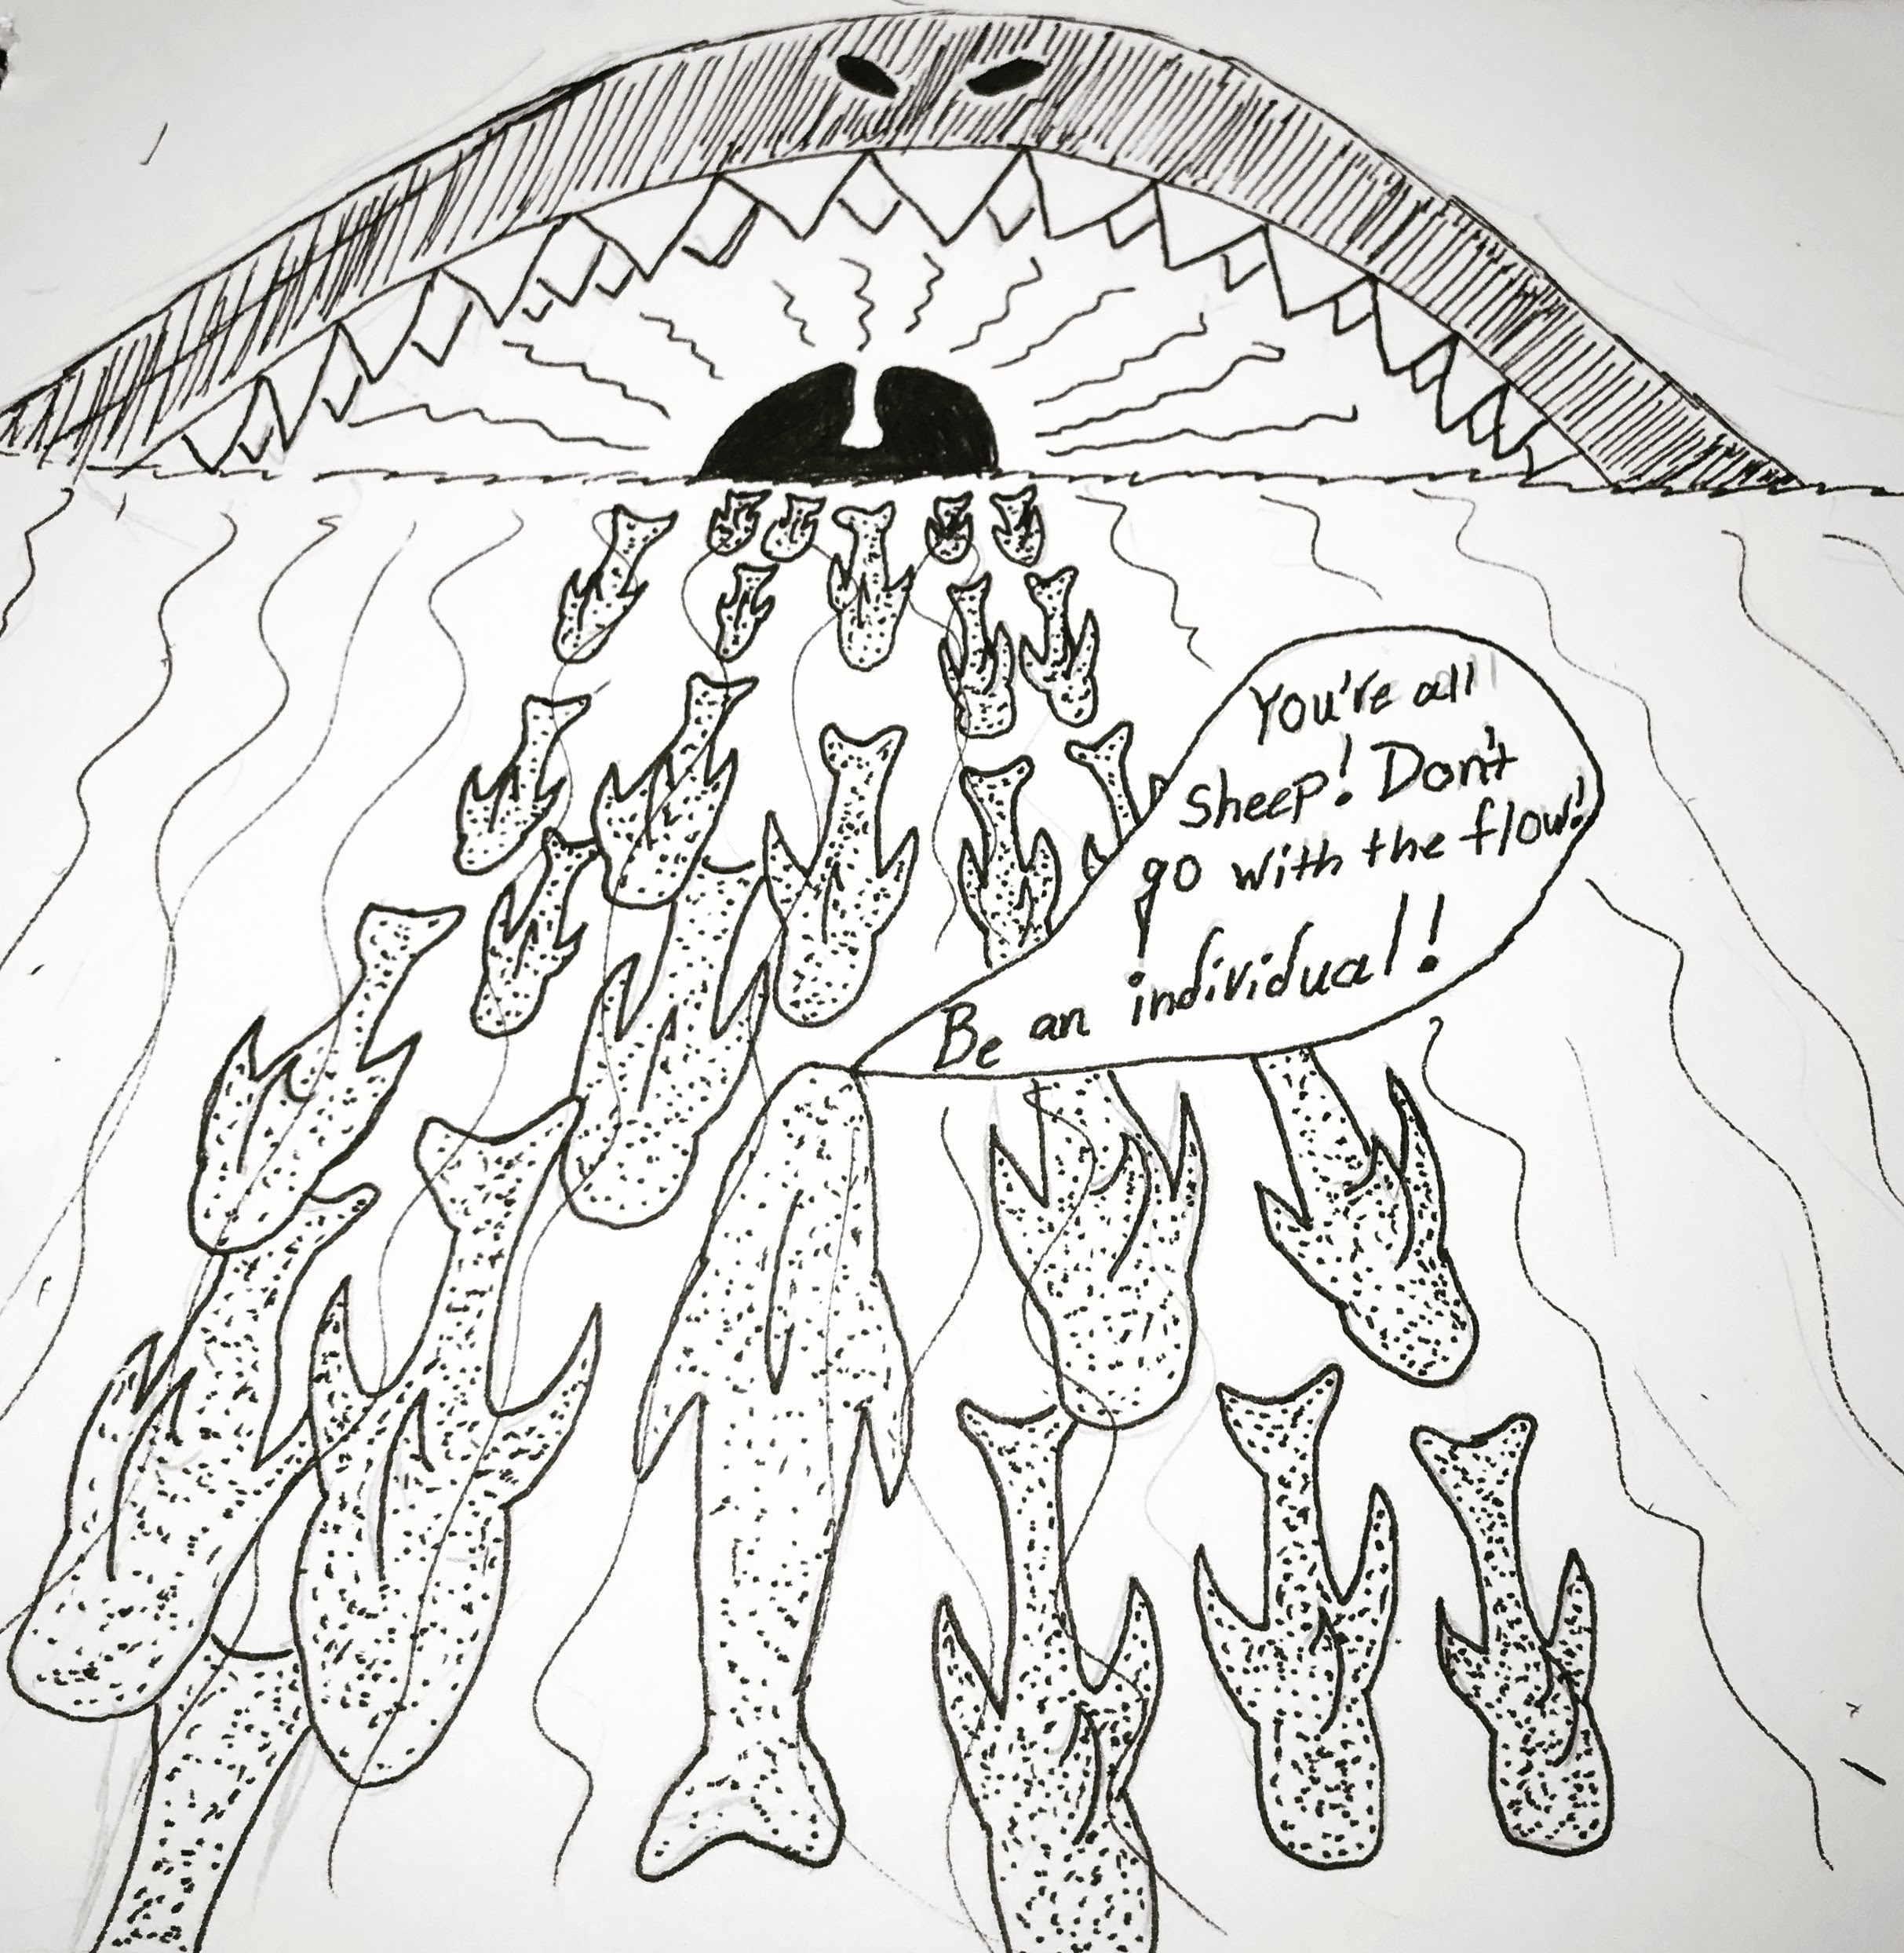 You're all
Sheep! Don't
go with the flow!
Be an individual!